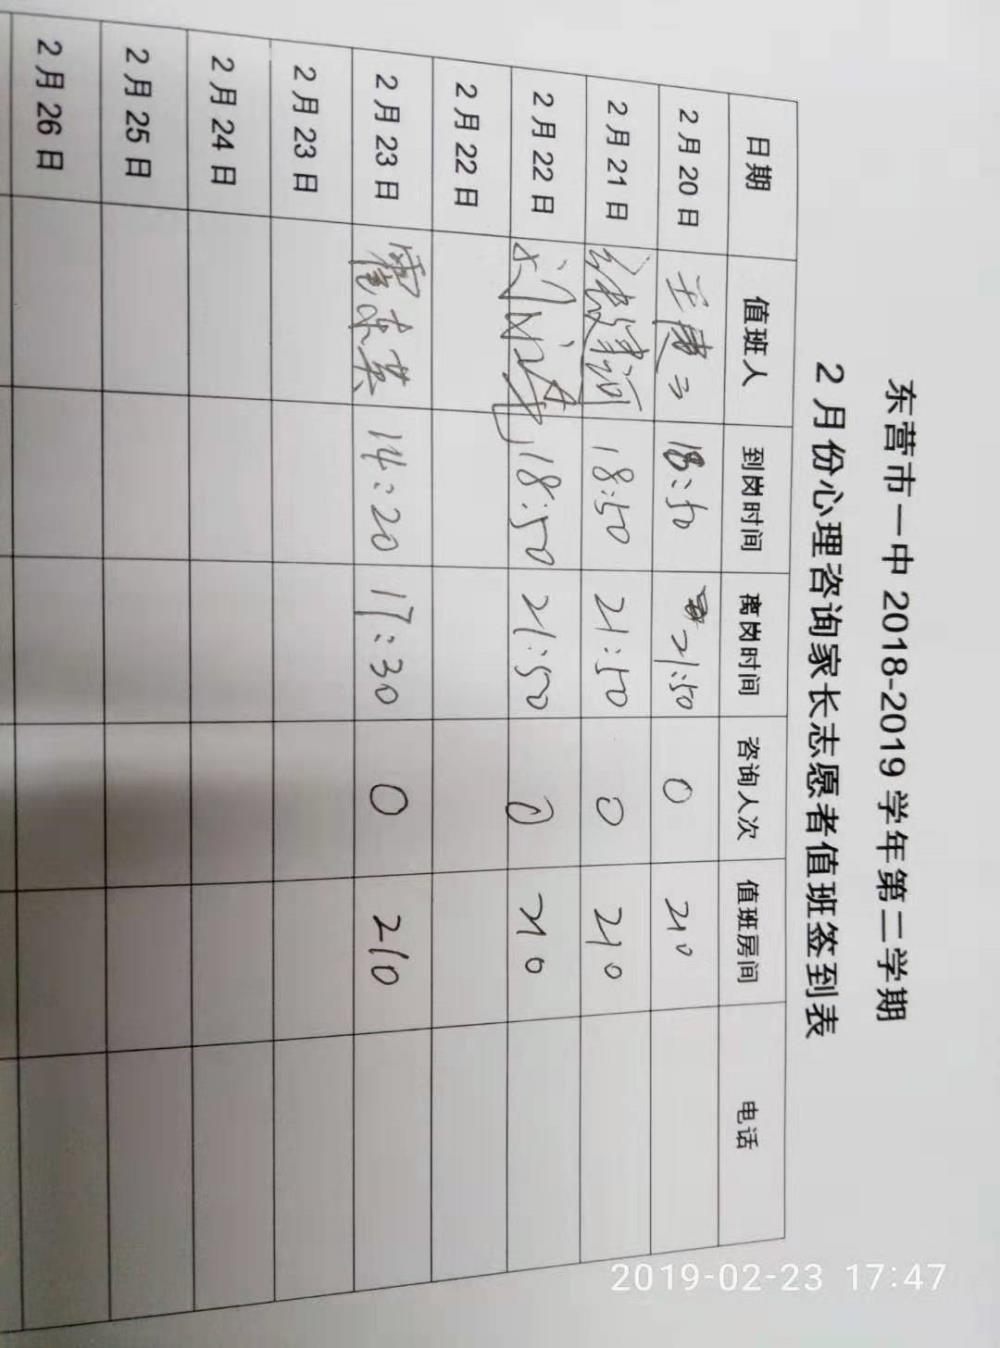 东营市一中 2018-2019 学年第二学期
2 月份心理咨询家长志愿者值班签到表
日期 值班人 到岗时间 离岗时间 咨询人次 值班房间 电话
2 月 20 日 18:50 21:50 0 210
2 月 21 日 18:50 21:50 0 210
2 月 22 日 18:50 21:50 0 210
2 月 22 日
2 月 23 日 14:20 17:30 0 210
2 月 23 日
2 月 24 日
2 月 25 日
2 月 26 日
2019-02-23 17:47